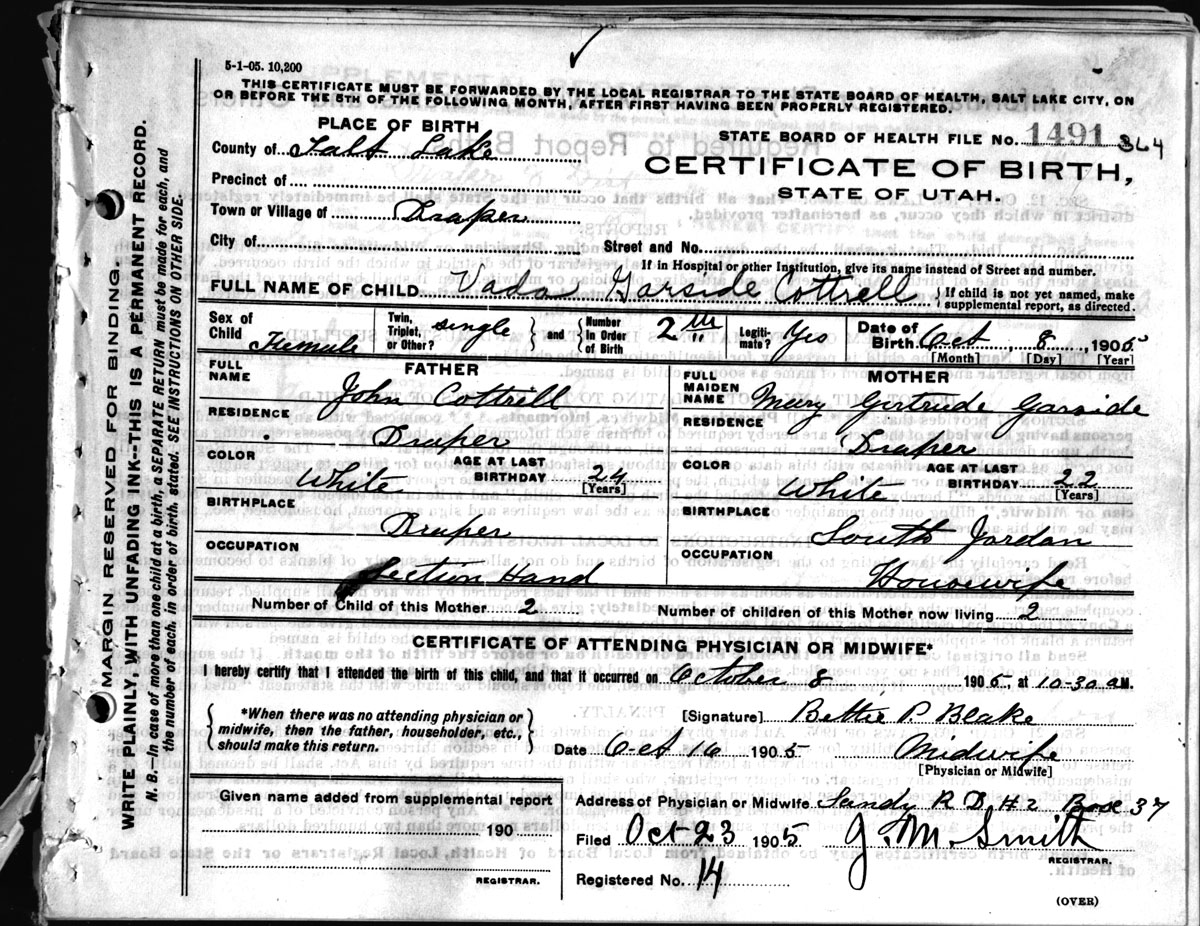 5-1-05. 10,200
THIS CERTIFICATE MUST BE FORWARDED BY THE LOCAL REGISTRAR TO THE STATE BOARD OF HEALTH, SALT LAKE CITY, ON
OR BEFORE THE 5TH OF THE FOLLOWING MONTH, AFTER FIRST HAVING BEEN PROPERLY REGISTERED.
PLACE OF BIRTH
County of Salt Lake
Precinct of
Town or Village of Draper
City of
STATE BOARD OF HEALTH FILE No. 1491 364
CERTIFICATE OF BIRTH,
STATE OF UTAH.
Street and No.
If in Hospital or other Institution, give its name instead of Street and number.
FULL NAME OF CHILD Vada Garside Cottrell { If child is not yet named, make supplemental report, as directed.
Sex of Child Female
Twin, Triplet, or Other? single } and { Number In Order of Birth 2
Legitimate? Yes
Date of Birth Oct 8, 1905
[Month] [Day] [Year]
FATHER
FULL NAME John Cottrell
RESIDENCE Draper
COLOR White AGE AT LAST BIRTHDAY 24 [Years]
BIRTHPLACE Draper
OCCUPATION Section Hand
MOTHER
FULL MAIDEN NAME Mary Gertrude Garside
RESIDENCE Draper
COLOR White AGE AT LAST BIRTHDAY 22 [Years]
BIRTHPLACE South Jordan
OCCUPATION Housewife
Number of Child of this Mother 2 Number of children of this Mother now living 2
CERTIFICATE OF ATTENDING PHYSICIAN OR MIDWIFE*
I hereby certify that I attended the birth of this child, and that it occurred on October 8 1905, at 10-30 a M.
{ *When there was no attending physician or midwife, then the father, householder, etc., should make this return. }
[Signature] Bettie P. Blake
Date Oct 16 1905 Midwife
[Physician or Midwife]
Given name added from supplemental report
190
REGISTRAR.
Address of Physician or Midwife Sandy R D # 2 Box 37
Filed Oct-23 1905 J. M. Smith
REGISTRAR.
Registered No. 14
(OVER)
MARGIN RESERVED FOR BINDING
WRITE PLAINLY, WITH UNFADING INK--THIS IS A PERMANENT RECORD.
N. B.—In case of more than one child at a birth, a SEPARATE RETURN must be made for each, and
the number of each, in order of birth, stated. SEE INSTRUCTIONS ON OTHER SIDE.